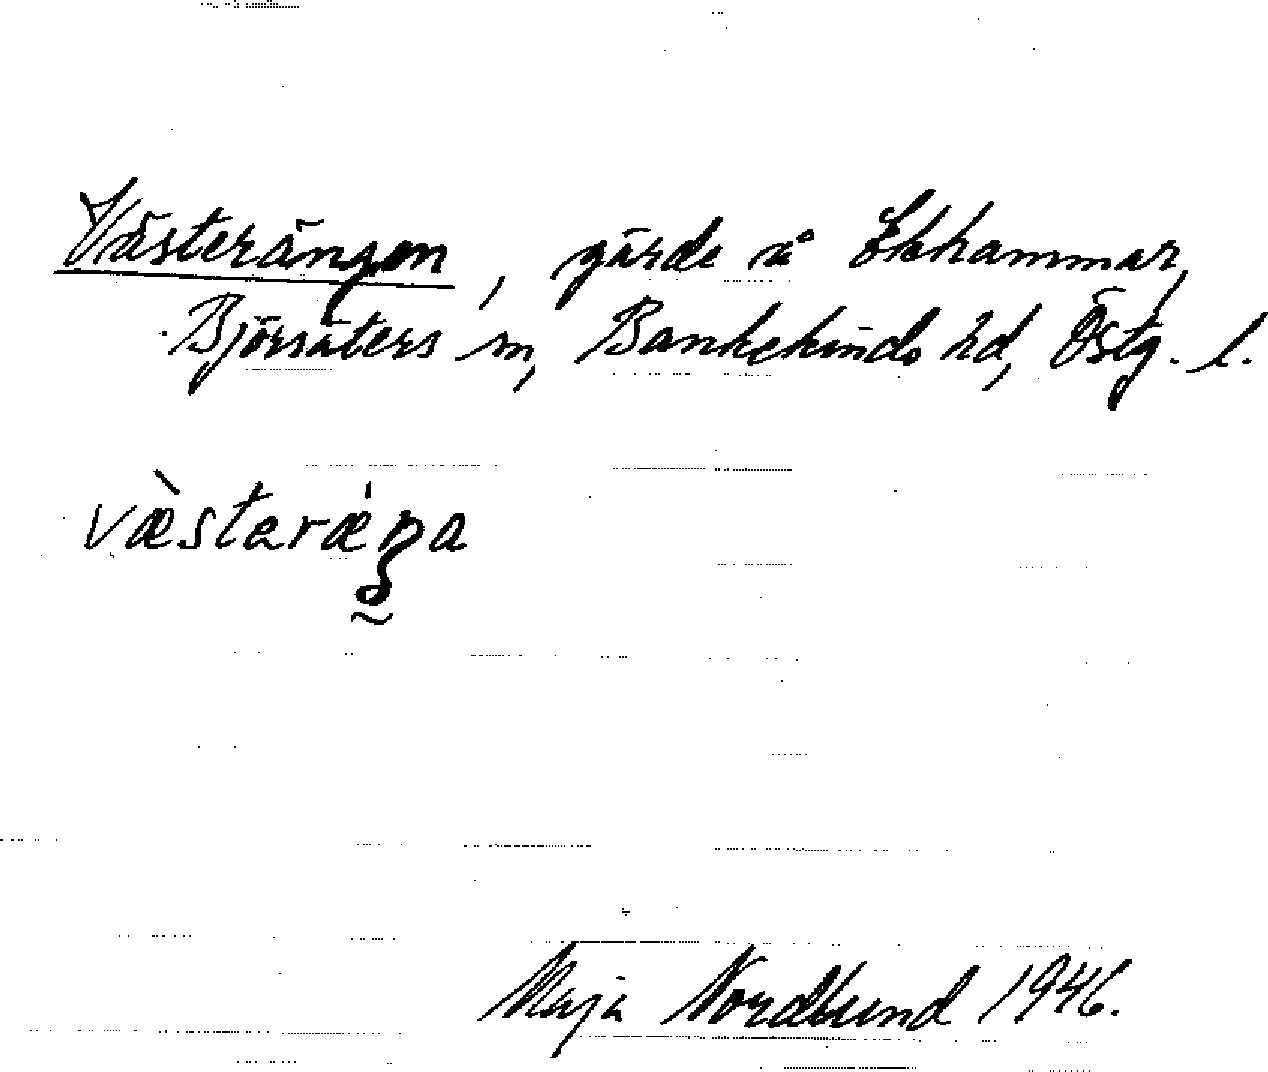 Västerängen, gärde å Ekhammar,
Björsäters sn, Bankekinds hd, Östg. l.
væ̀stərǽŋa
Maja Nordlund 1946.